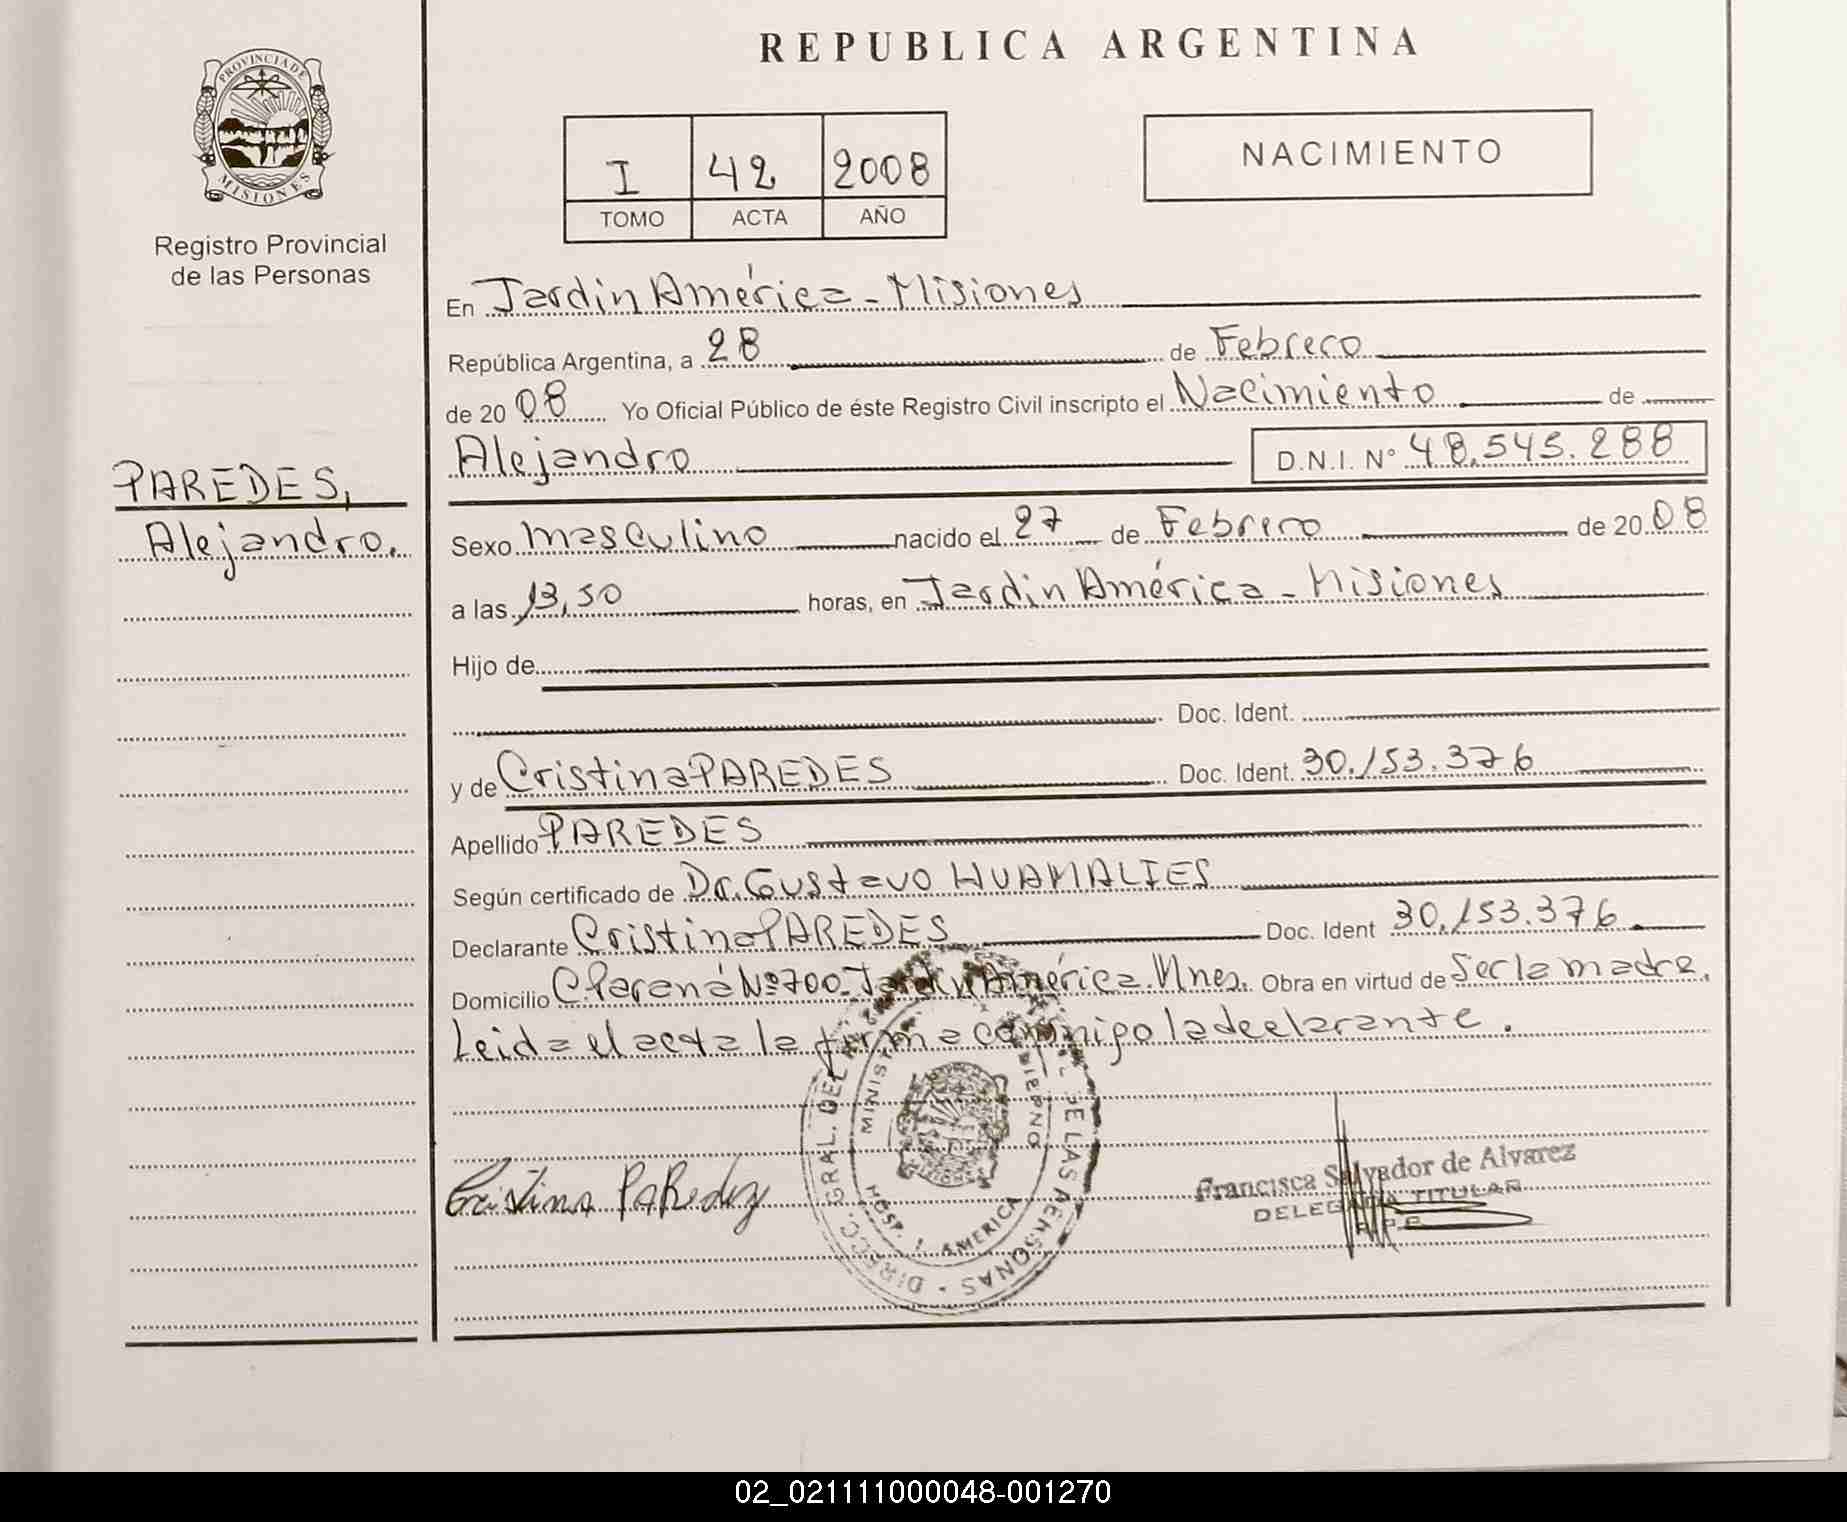 REPUBLICA ARGENTINA
PROVINCIA DE MISIONES
Registro Provincial
de las Personas
I 42 2008
TOMO ACTA AÑO
NACIMIENTO
PAREDES,
Alejandro.
En Jardin América - Misiones
República Argentina, a 28 de Febrero
de 2008 Yo Oficial Público de éste Registro Civil inscripto el Nacimiento de
Alejandro D.N.I. N° 48.545.288
Sexo masculino nacido el 27 de Febrero de 2008
a las 13,50 horas, en Jardin América - Misiones
Hijo de
Doc. Ident.
y de Cristina PAREDES Doc. Ident. 30.153.376
Apellido PAREDES
Según certificado de Dr. Gustavo HUAMALIES
Declarante Cristina PAREDES Doc. Ident 30.153.376
Domicilio C. Paraná Nº 700 - Jardin América. Mnes. Obra en virtud de Ser la madre.
Leida el acta la firma conmigo la declarante.
Cristina Paredez
DIRECC. GRAL. DEL DE LAS PERSONAS
HOSP. J. AMERICA
Francisca Salvador de Alvarez
DELEGADA TITULAR
R.P.P.
02_021111000048-001270